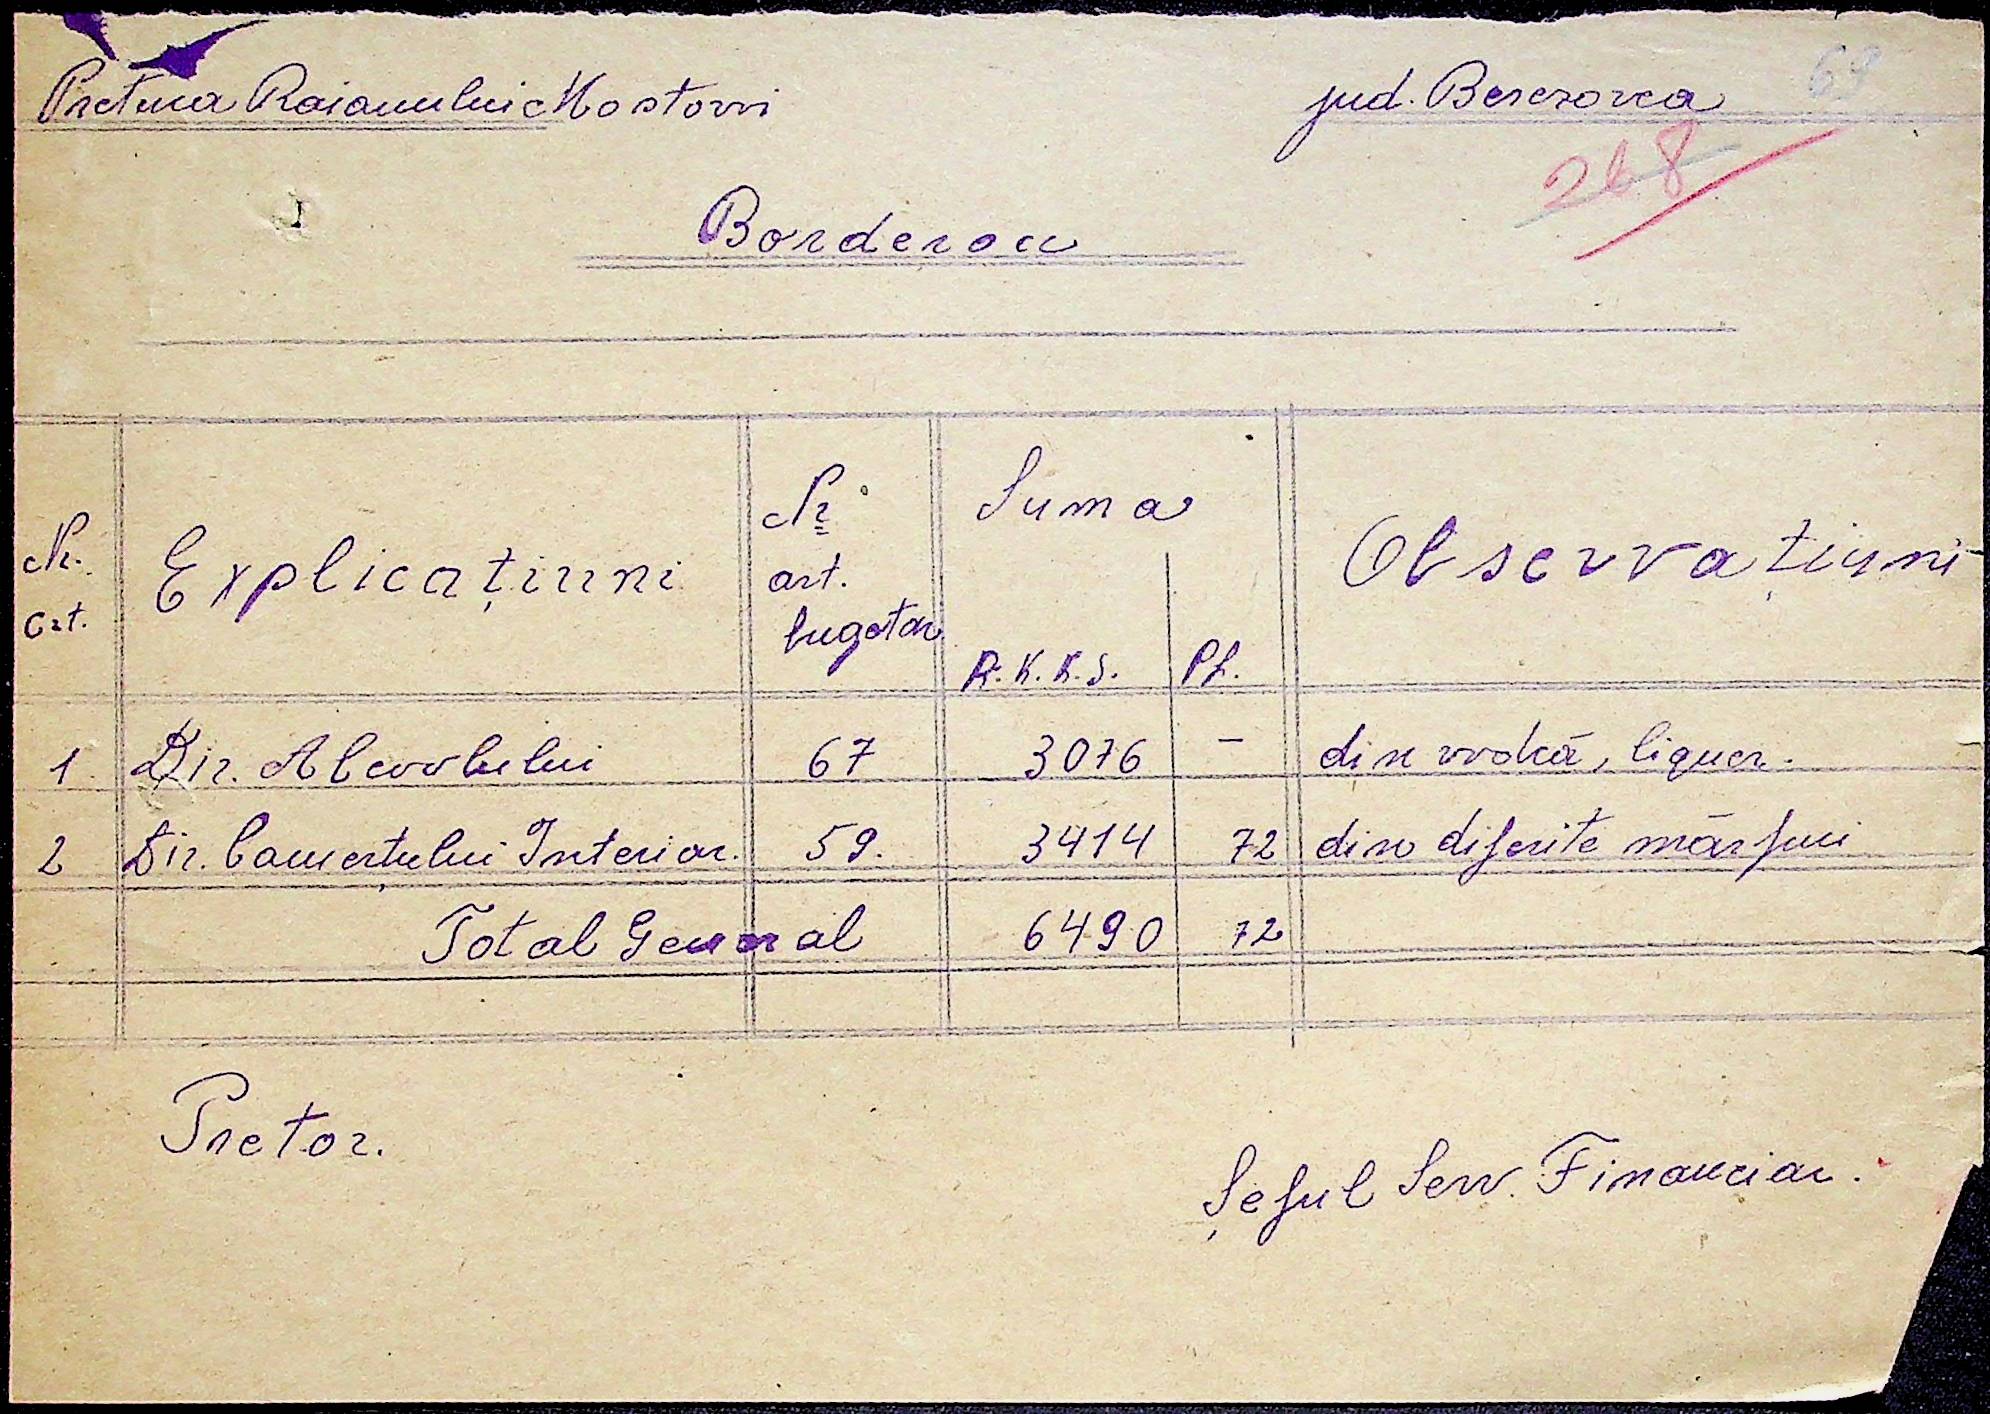 Pretura Raionului Mostovoi jud. Beresovca 69
268
Borderou
Nr. crt. Explicațiuni Nr. art. bugetar Suma R.K.K.S. Pf. Observațiuni
1 Dir. Alcoolului 67 3076 — din vodcă, liquer.
2 Dir. Comerțului Interior. 59. 3414 72 din diferite mărfuri
Total General 6490 72
Pretor.
Șeful Serv. Financiar.